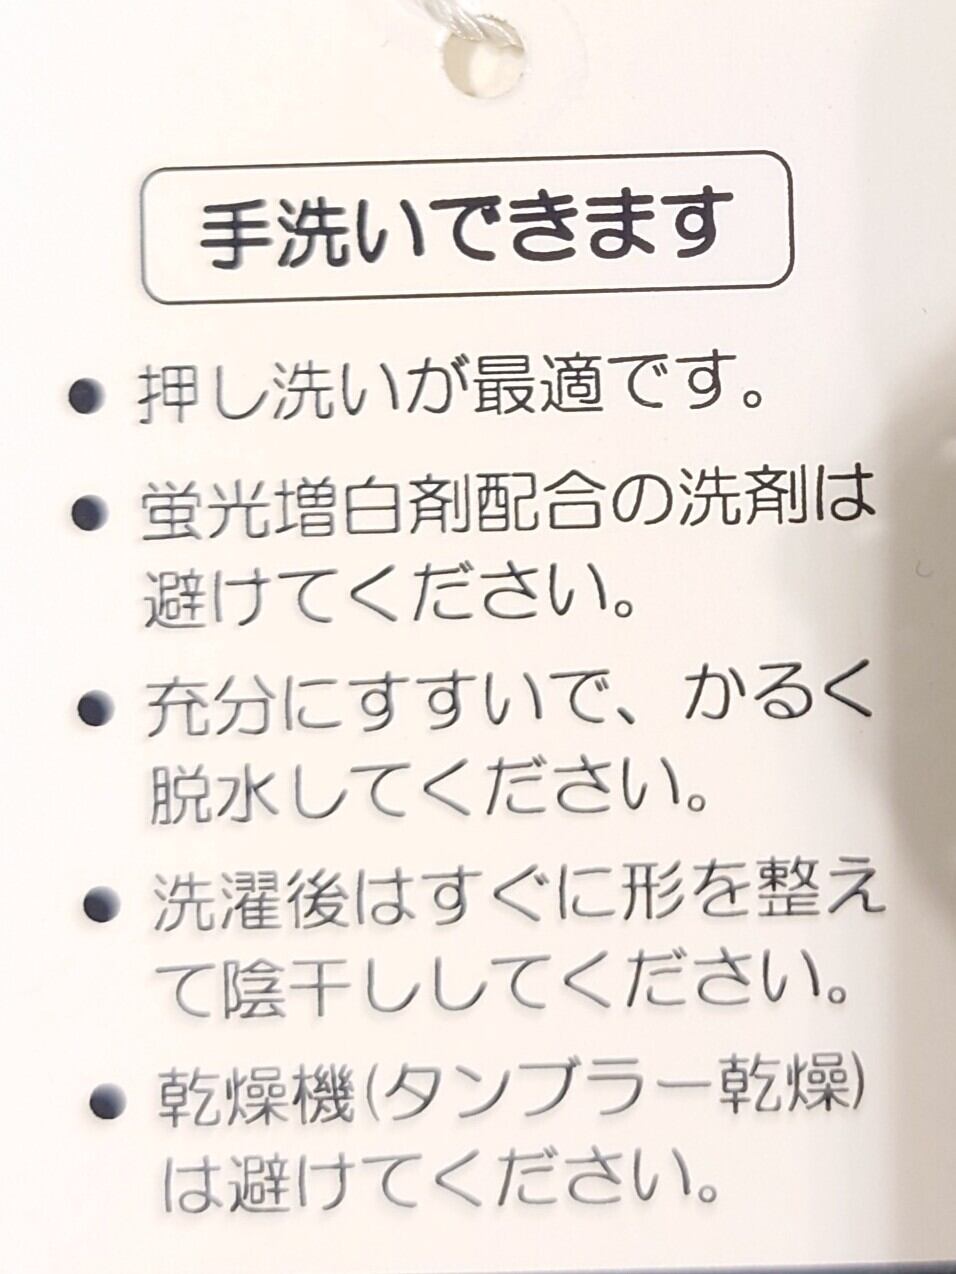 手洗いできます
● 押し洗いが最適です。
● 蛍光増白剤配合の洗剤は
避けてください。
● 充分にすすいで、かるく
脱水してください。
● 洗濯後はすぐに形を整え
て陰干ししてください。
● 乾燥機(タンブラー乾燥)
は避けてください。